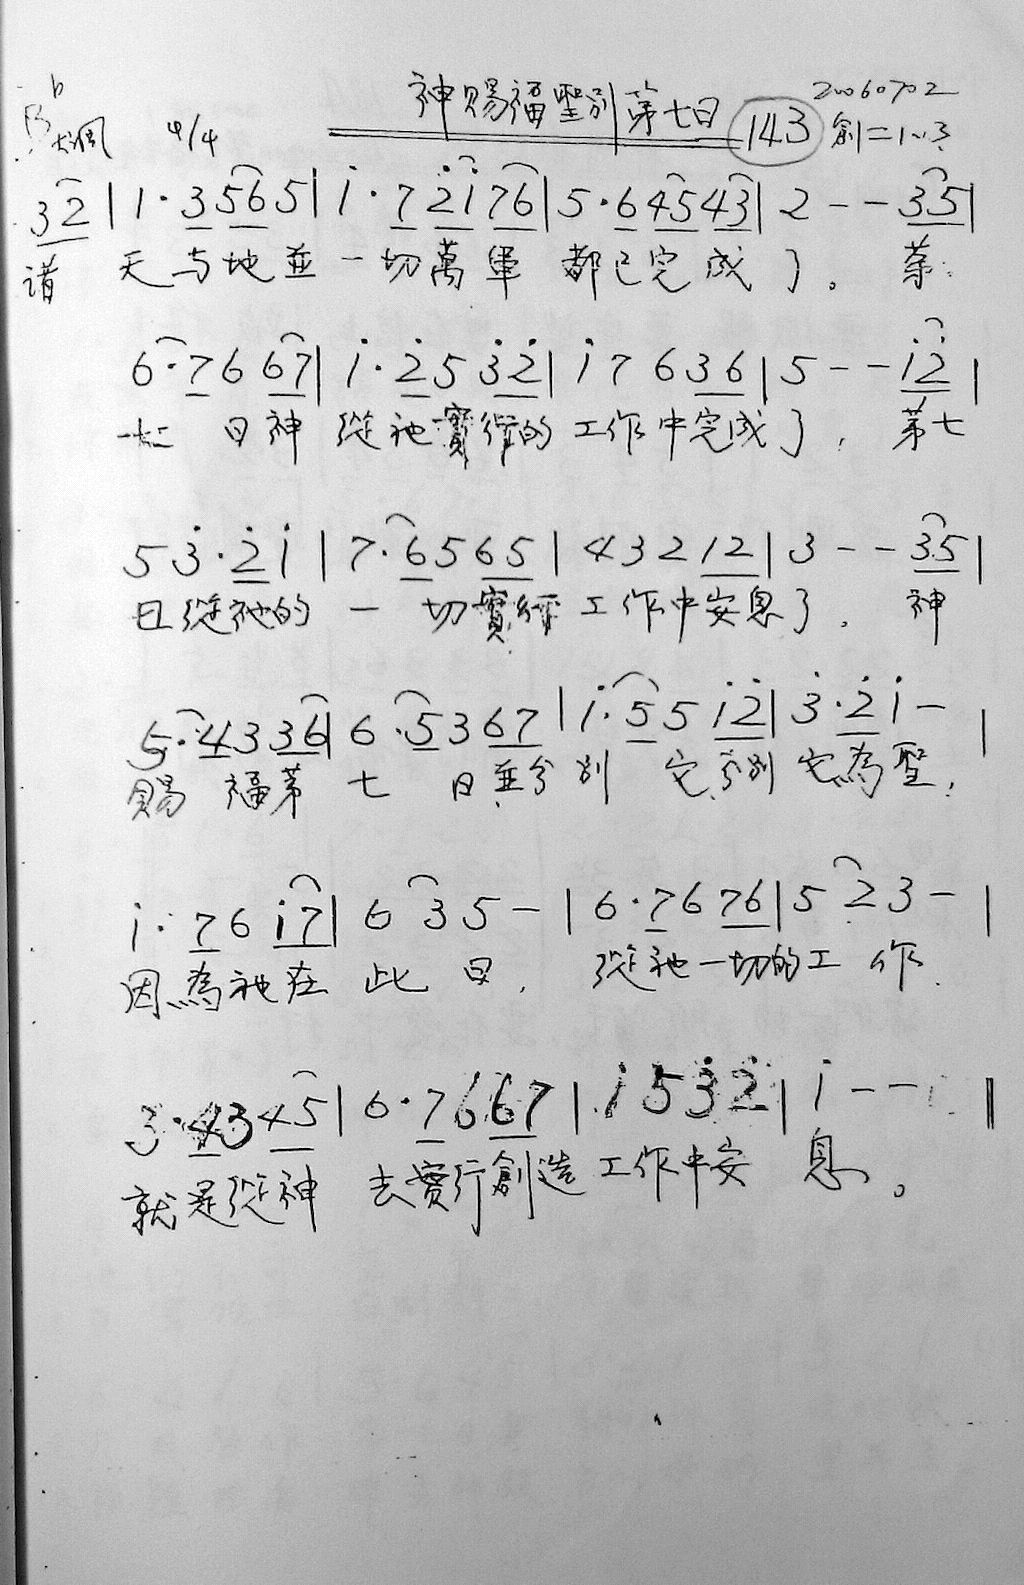 神賜福聖別第七日 143 20060702
B♭ 4/4 創二1~3
3 2 | 1 · 3 5 6 5 | i · 7 2̇ i 7 6 | 5 · 6 4 5 4 3 | 2 - - 3 5 |
諸 天与地並一切萬軍 都已完成了。第
6 · 7 6 6 7 | i · 2̇ 5 3̇ 2̇ | i 7 6 3 6 | 5 - - i 2̇ |
七 日神 從祂實行的工作中完成了, 第七
5 3̇ · 2̇ i | 7 · 6 5 6 5 | 4 3 2 1 2 | 3 - - 3 5 |
日從祂的 一 切實行 工作中安息了. 神
5 · 4 3 3 6 | 6 · 5 3 6 7 | i · 5 5 i 2̇ | 3̇ · 2̇ i - |
賜 福第 七 日並分別 它, 分別它為聖,
i · 7 6 i 7 | 6 3 5 - | 6 · 7 6 7 6 | 5 2 3 - |
因為祂在 此 日, 從祂一切的工 作.
3 · 4 3 4 5 | 6 · 7 6 6 7 | i 5 3̇ 2̇ | i - - ||
就是從神 去實行創造工作中安 息。